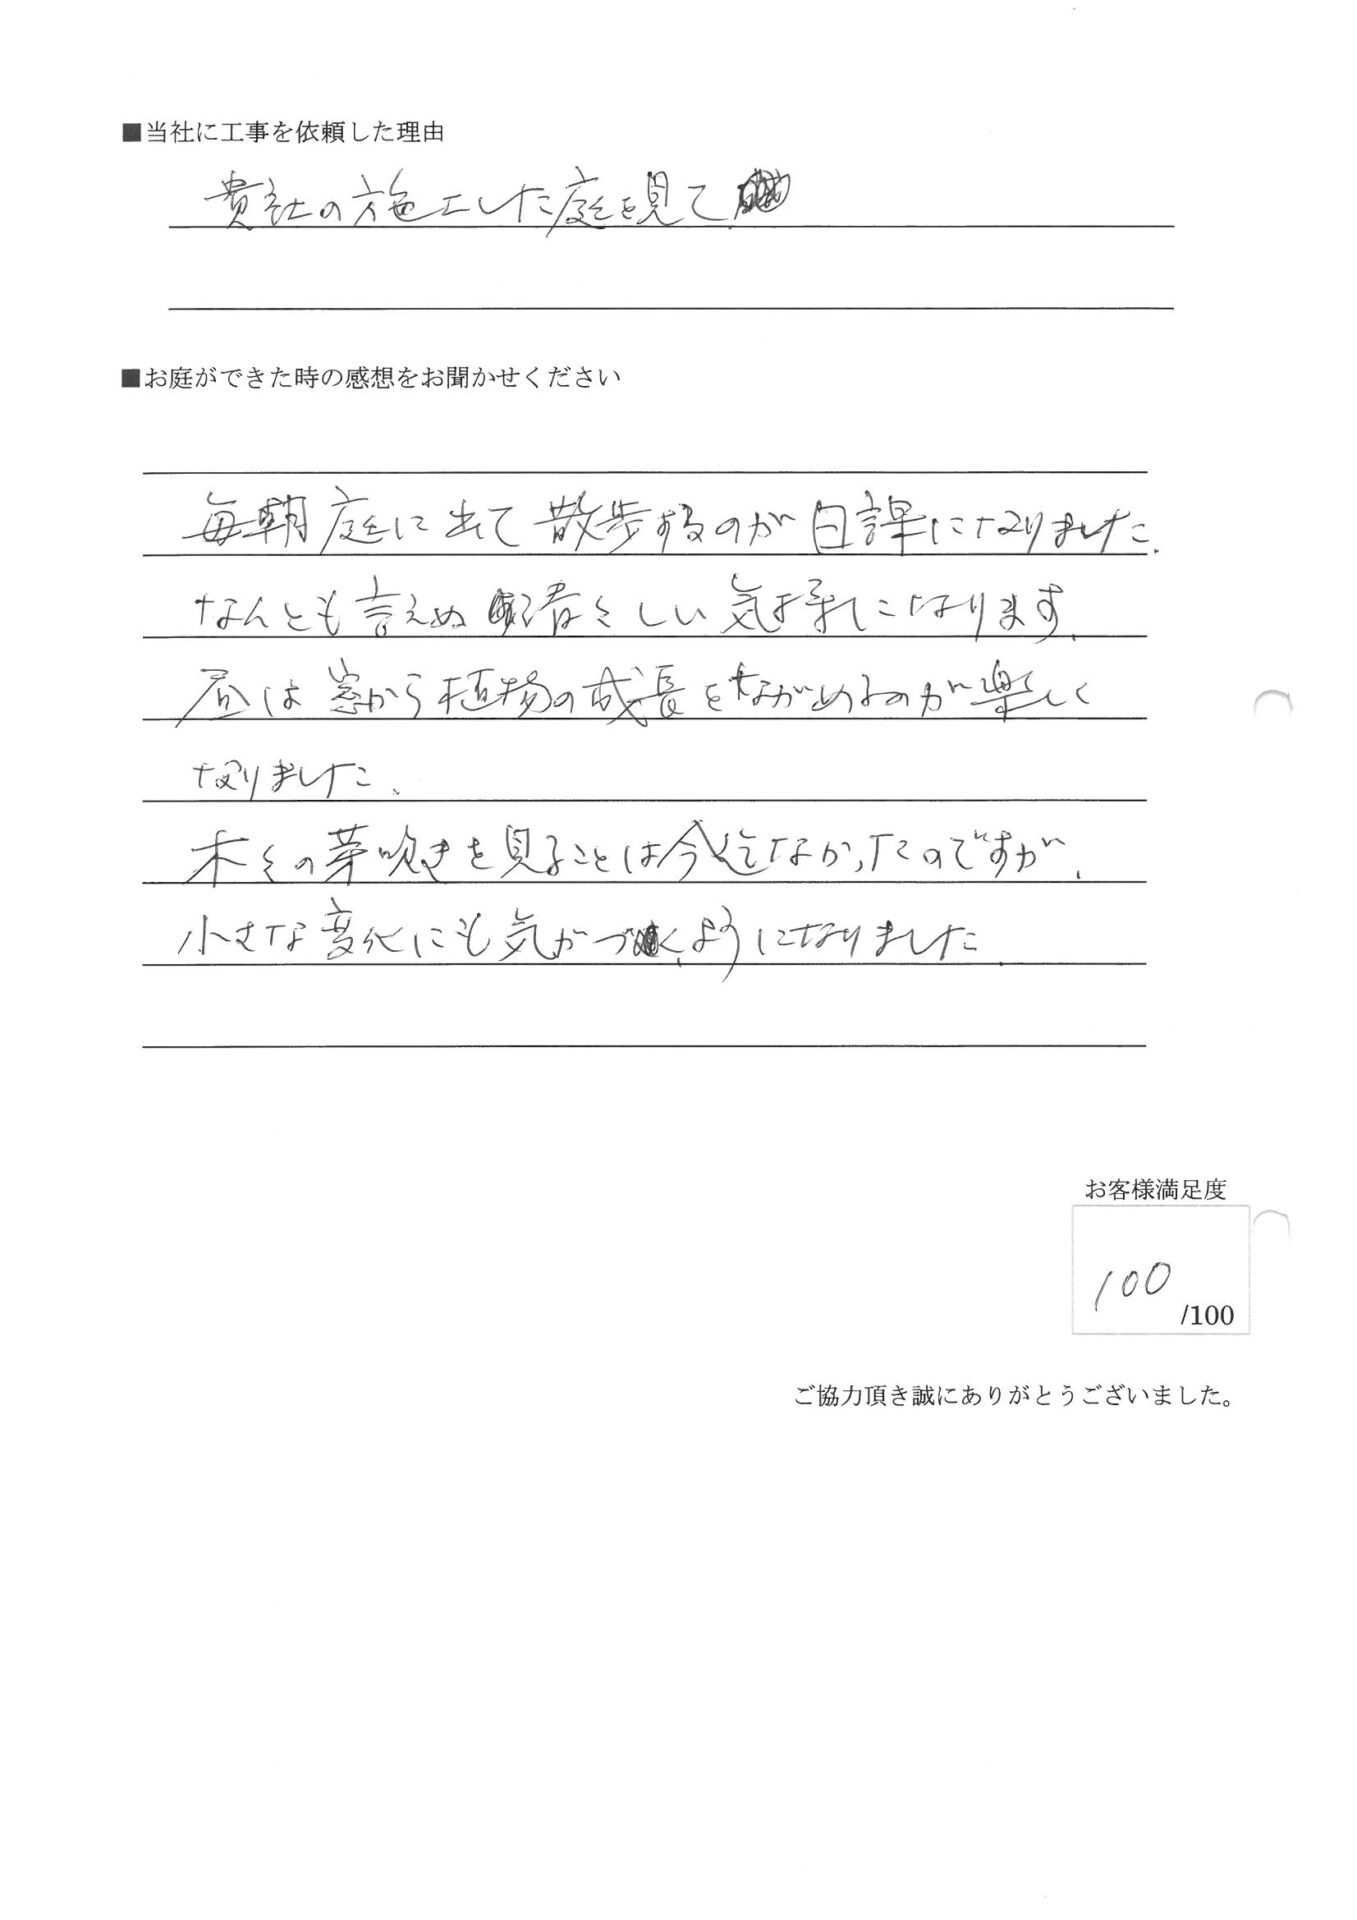 ■当社に工事を依頼した理由
貴社の施工した庭を見て
■お庭ができた時の感想をお聞かせください
毎朝庭に出て散歩するのが日課になりました.
なんとも言えぬ 々しい気持になります.
昼は窓から植物の成長をながめるのが楽しく
なりました.
木々の芽吹きを見ることは今迄なかったのですが,
小さな変化にも気がづくようになりました.
お客様満足度
100
/100
ご協力頂き誠にありがとうございました。